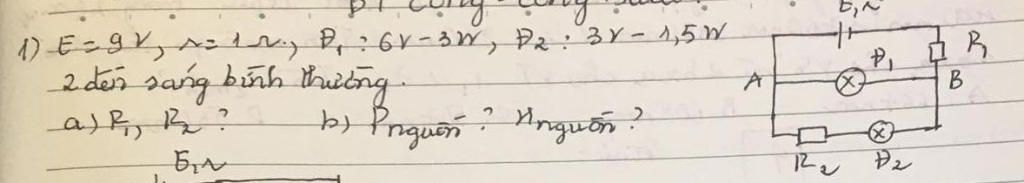 1) E = 9V, r = 1Ω, Đ1 : 6V - 3W, Đ2 : 3V - 1,5W
2 đèn sáng bình thường.
a) R1, R2 ? b) Pnguồn ? Hnguồn ?
E, r
E, r
R1
Đ1
A
B
R2
Đ2